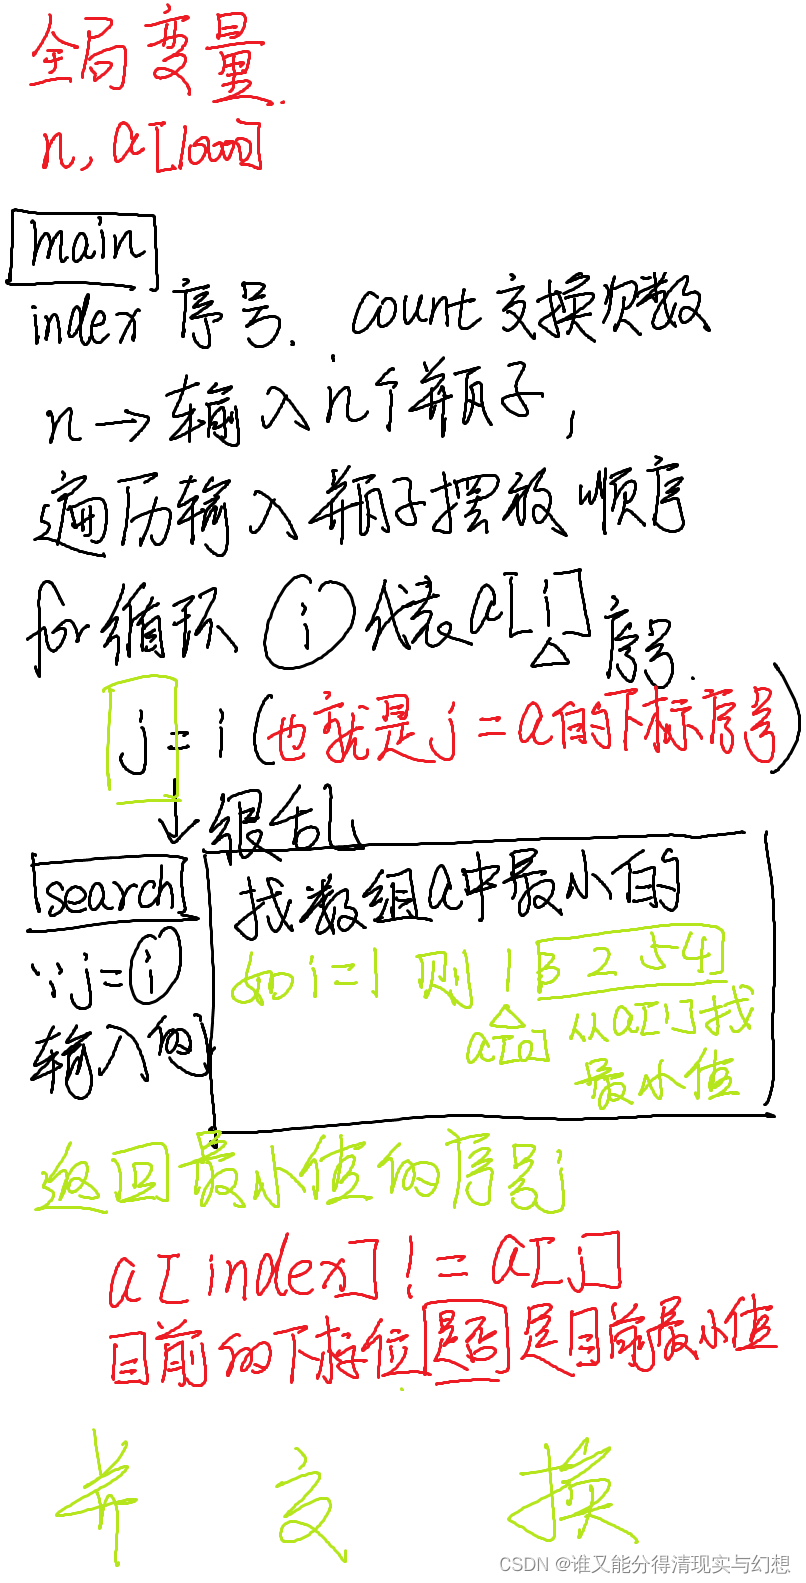 全局变量.
n, a[10000]
main
index 序号. count交换次数
n→输入n个瓶子,
遍历输入瓶子摆放顺序
for循环 i 代表a[i]序号.
j = i (也就是j = a的下标序号)
很乱
search
找数组a中最小的
∵j=i
输入的
如i=1 则 1 3 2 5 4
a[0] 从a[1]找
最小值
返回最小值的序号j
a[index] != a[j]
目前的下标位是否是目前最小值
并 交 换
CSDN @谁又能分得清现实与幻想